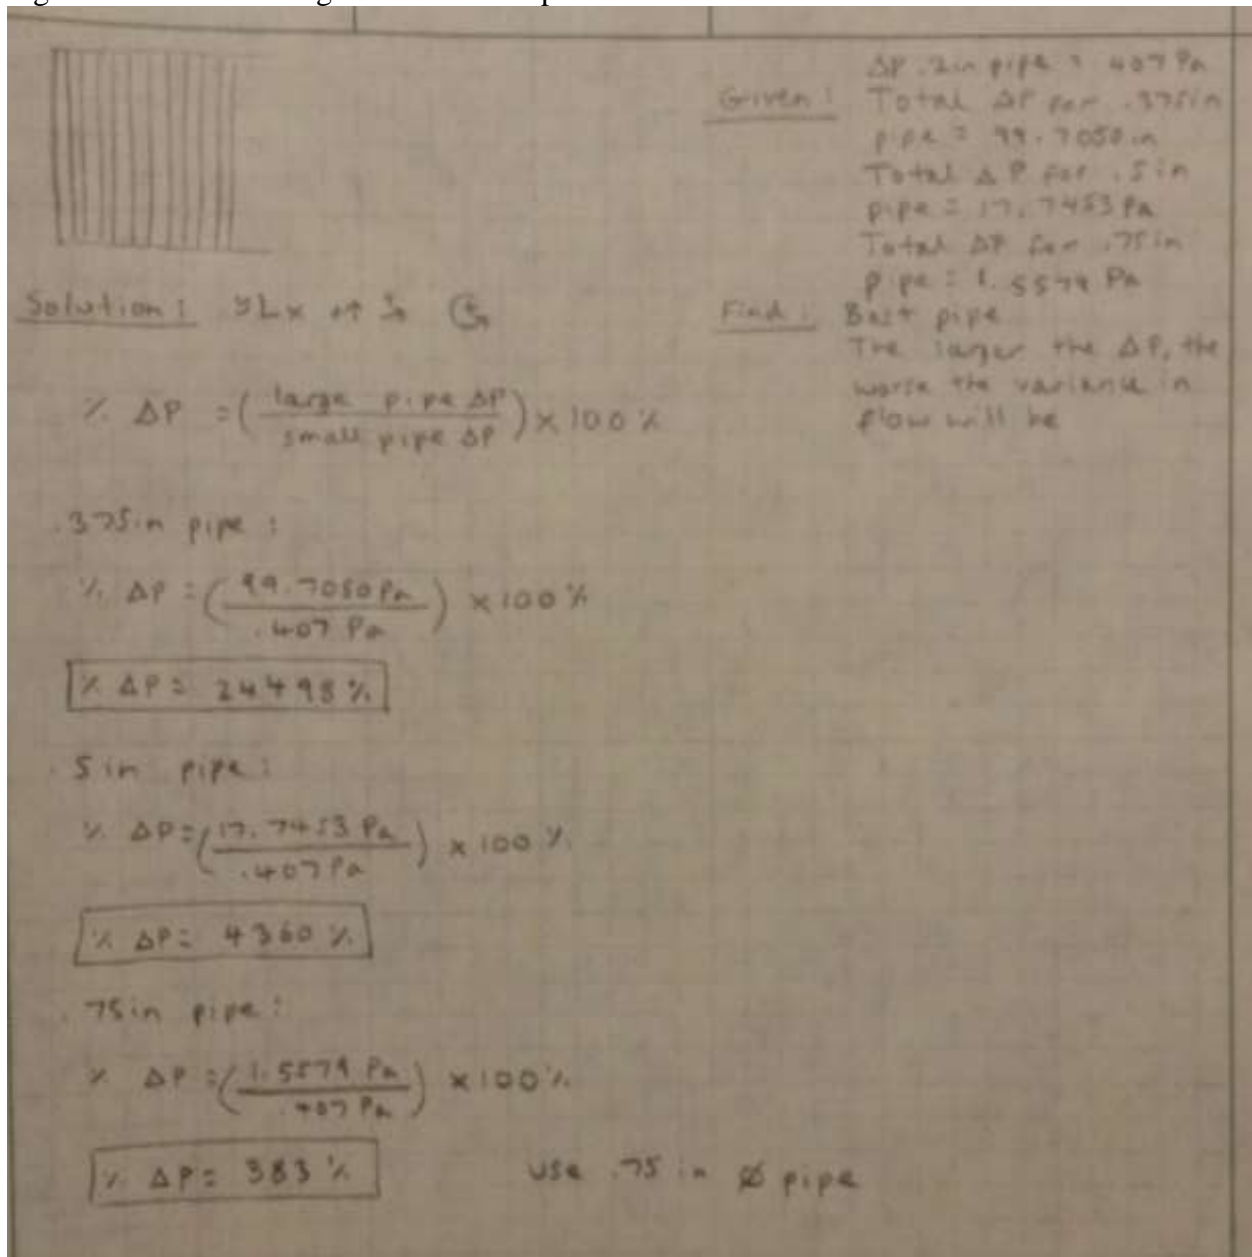 ΔP .2in pipe = .407 Pa
Given: Total ΔP for .375in
pipe = 99.7050in
Total ΔP for .5in
pipe = 17.7453 Pa
Total ΔP for .75in
pipe = 1.5579 Pa
Find: Best pipe
The larger the ΔP, the
worse the variance in
flow will be
Solution:
% ΔP = (large pipe ΔP / small pipe ΔP) × 100%
.375in pipe:
% ΔP = (99.7050 Pa / .407 Pa) × 100%
% ΔP = 24498%
.5in pipe:
% ΔP = (17.7453 Pa / .407 Pa) × 100%
% ΔP = 4360%
.75in pipe:
% ΔP = (1.5579 Pa / .407 Pa) × 100%
% ΔP = 383%
use .75 in ø pipe